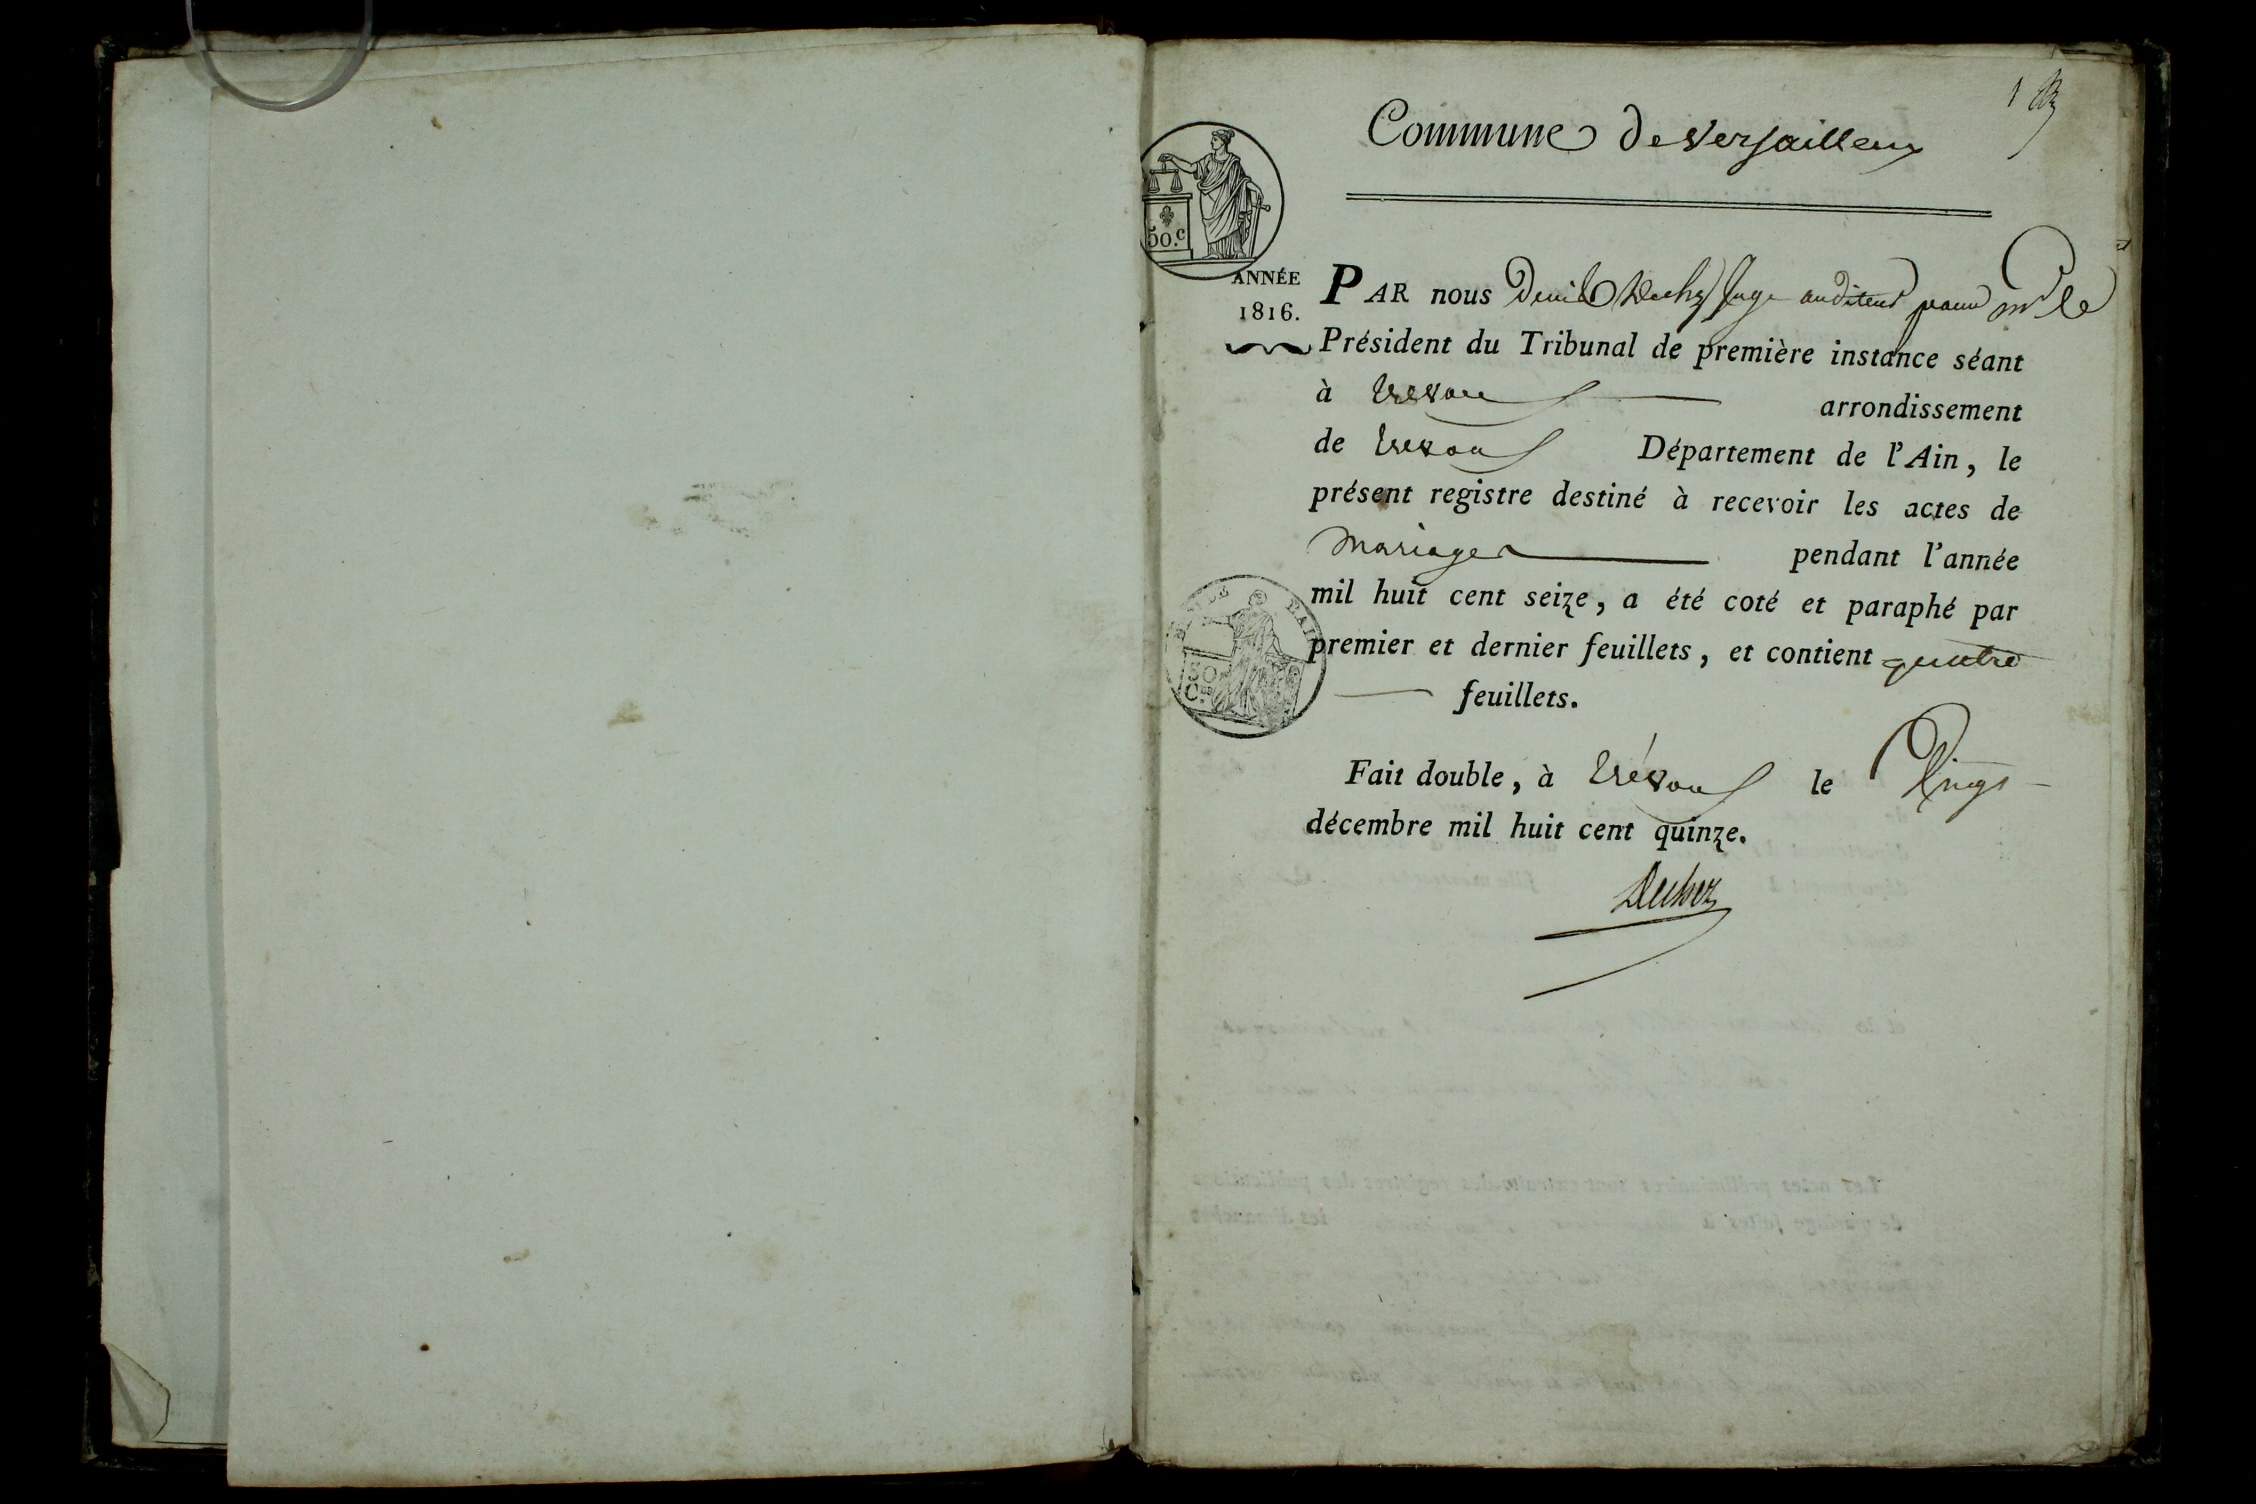 1
Commune de Versailleux
50.c
ANNÉE
1816.
PAR nous juge auditeur pour mr le
Président du Tribunal de première instance séant
à trevoux arrondissement
de trevoux Département de l'Ain, le
présent registre destiné à recevoir les actes de
mariages pendant l'année
mil huit cent seize, a été coté et paraphé par
premier et dernier feuillets, et contient quatre
feuillets.
50
Ces
Fait double, à trévoux le vingt
décembre mil huit cent quinze.